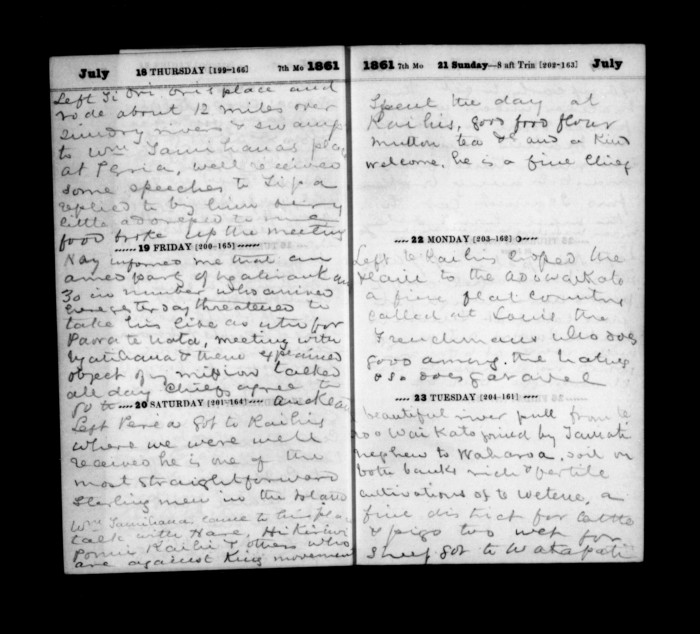 July 18 THURSDAY [199-166] 7th Mo 1861
Left Ti Ori Ori's place and
rode about 12 miles over
sundry rivers & swamps
to Wm Tamihana's place
at Peria, well received
some speeches to
replied to by him very
little adhered to
food broke up the meeting
19 FRIDAY [200-165]
Nay informed me that an
armed party of
30 in number who arrived
threatened to
take his life as utu for
meeting with
Ngatihaua & there explained
object of my mission talked
all day Chiefs agree to
go to Auckland
20 SATURDAY [201-164]
Left Peria got to Raihis
where we were well
received he is one of the
most straightforward
sterling men in the Island
Wm Tamihana came to this place
talk with Hare,
Pomie Raihi & others who
are against King movement
1861 7th Mo 21 Sunday—8 aft Trin [202-163] July
Spent the day at
Raihis, good food flour
mutton tea &c and a kind
welcome. he is a fine Chief
22 MONDAY [203-162]
Left Te Raihis & sped the
to the
a fine flat country
called at Louis the
Frenchmans who does
good among the natives
so does
23 TUESDAY [204-161]
beautiful river pull from
Waikato joined by Tamati
nephew to Waharoa, soil on
both banks rich & fertile
cultivations of to wetene, a
fine district for cattle
& pigs too wet for
sheep got to